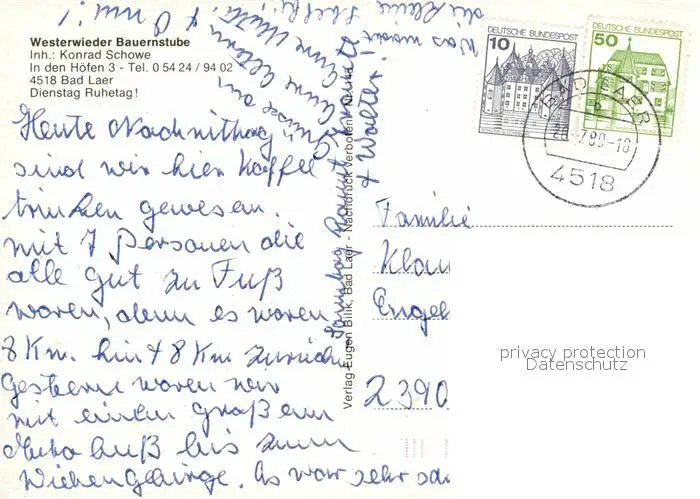 Westerwieder Bauernstube
Inh.: Konrad Schowe
In den Höfen 3 - Tel. 0 54 24 / 94 02
4518 Bad Laer
Dienstag Ruhetag!
Heute Nachmittag
sind wir hier Kaffee
trinken gewesen.
mit 7 Personen die
alle gut zu Fuß
waren, denn es waren
8 Km. hin + 8 Km zurück
Gestern waren wir
mit einem großen
bis zum
Wiehengebirge. Es war sehr
Grüße an
Eure Eltern
+ Omi!
Eure
+ Walter!
Was macht
die kleine
Verlag Eugen Bilik, Bad Laer - Nachdruck verboten
10
DEUTSCHE BUNDESPOST
50
DEUTSCHE BUNDESPOST
BAD LAER
4518
Familie
Klau
Engel
2390
privacy protection
Datenschutz